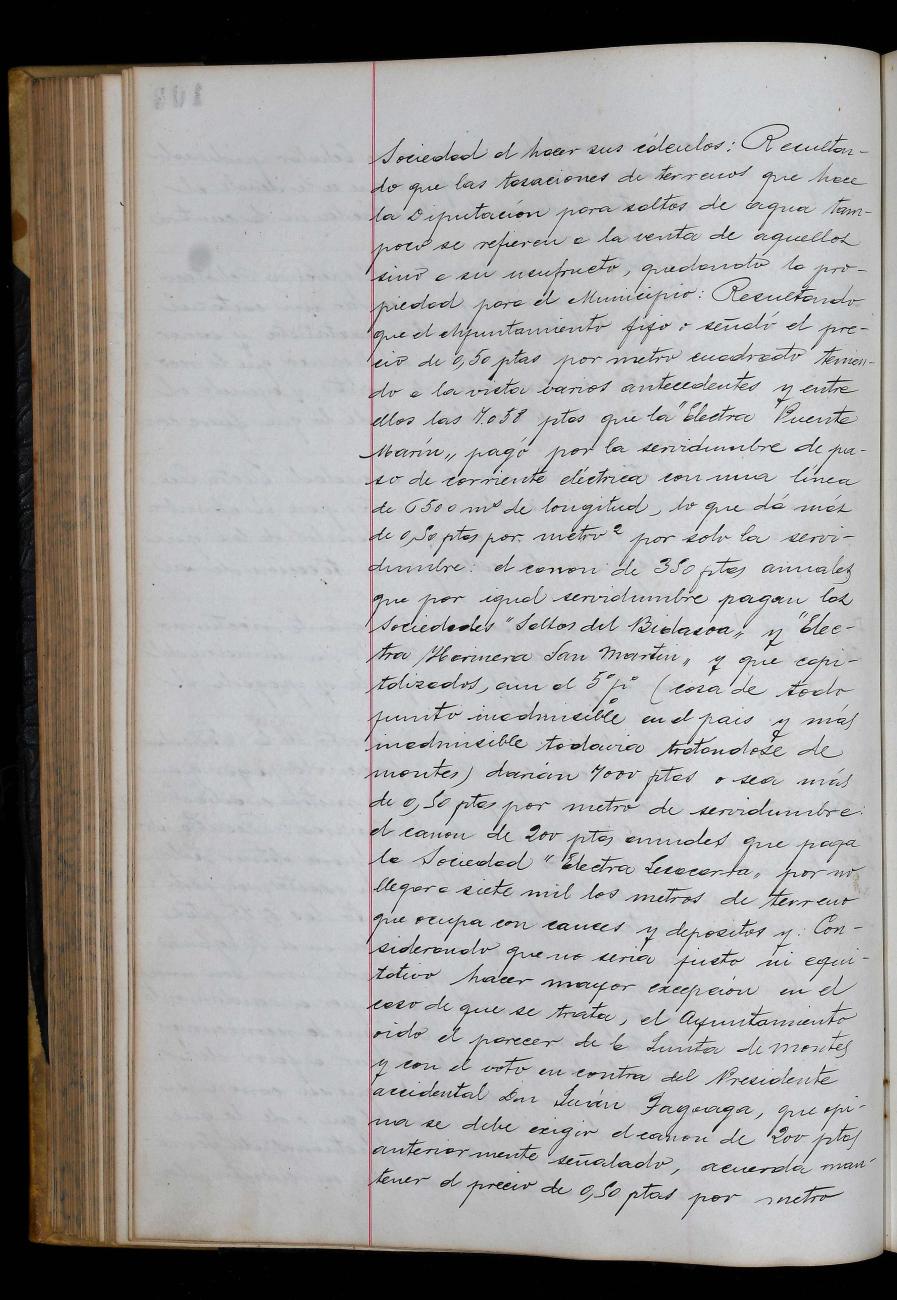 Sociedad al hacer sus cálculos: Resultan-
do que las tasaciones de terrenos que hace
la Diputación para saltos de agua tam-
poco se refieren a la venta de aquellos
sinó a su usufructo, quedando la pro-
piedad para el Municipio: Resultando
que el Ayuntamiento fijo o señaló el pre-
cio de 0,50 ptas por metro cuadrado tenien-
do a la vista varios antecedentes y entre
ellos las 7.058 ptas que la "Electra Puente
Marín" pagó por la servidumbre de pa-
so de corriente eléctrica con una línea
de 6500 ms de longitud, lo que dá más
de 0,50 ptas por metro 2 por solo la servi-
dumbre: el canon de 350 ptas anuales
que por igual servidumbre pagan las
Sociedades "Saltos del Bidasoa" y "Elec-
tra Harinera San Martín" y que capi-
talizados, aun al 5 % (cosa de todo
punto inadmisible en el pais y más
inadmisible todavia tratandose de
montes) darían 7000 ptas o sea más
de 0,50 ptas por metro de servidumbre:
el canon de 200 ptas anuales que paga
la Sociedad "Electra Lesacarra" por no
llegar a siete mil los metros de terreno
que ocupa con cauces y depositos y: Con-
siderando que no seria justo ni equi-
tativo hacer mayor excepción en el
caso de que se trata, el Ayuntamiento
oido el parecer de la Junta de montes
y con el voto en contra del Presidente
accidental Don Juán Fagoaga, que opi-
na se debe exigir el canon de 200 ptas
anteriormente señalado, acuerda man-
tener el precio de 0,50 ptas por metro